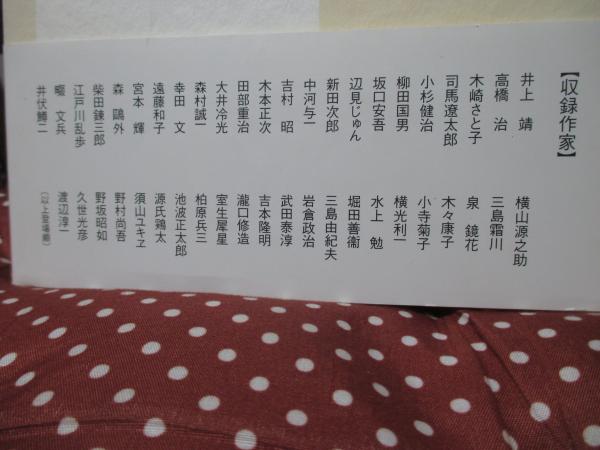 【収録作家】
井上 靖
高橋 治
木崎さと子
司馬遼太郎
小杉健治
柳田国男
坂口安吾
辺見じゅん
新田次郎
中河与一
吉村 昭
木本正次
田部重治
大井冷光
森村誠一
幸田 文
遠藤和子
宮本 輝
森 鷗外
柴田錬三郎
江戸川乱歩
堀 文兵
井伏鱒二
横山源之助
三島霜川
泉 鏡花
木々康子
小寺菊子
横光利一
水上 勉
堀田善衞
三島由紀夫
岩倉政治
武田泰淳
吉本隆明
瀧口修造
室生犀星
柏原兵三
池波正太郎
源氏鶏太
須山ユキヱ
野村尚吾
野坂昭如
久世光彦
渡辺淳一
(以上登場順)